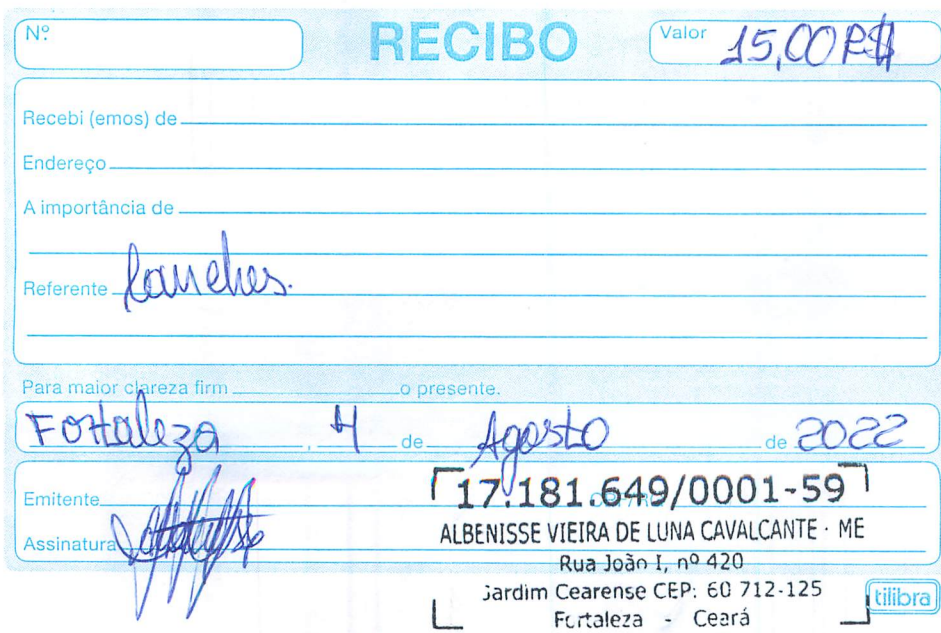 Nº RECIBO Valor 15,00 R$
Recebi (emos) de
Endereço
A importância de
Referente Lanches.
Para maior clareza firm o presente.
Fortaleza, 4 de Agosto de 2022
Emitente
17.181.649/0001-59
Assinatura
ALBENISSE VIEIRA DE LUNA CAVALCANTE - ME
Rua João I, nº 420
Jardim Cearense CEP: 60 712-125
tilibra
Fortaleza - Ceará